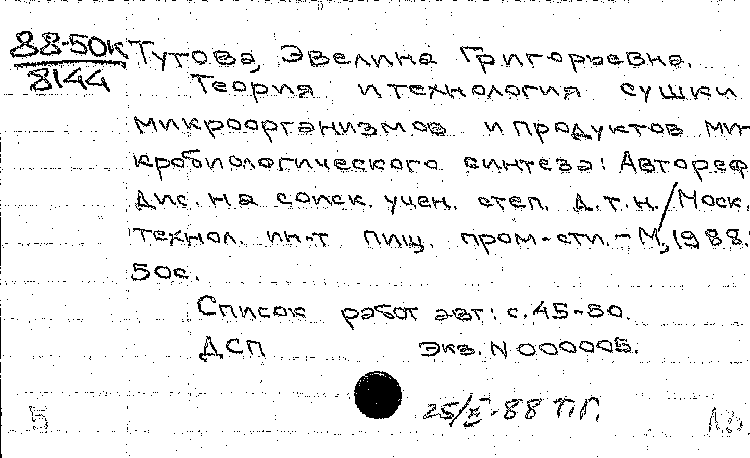 88-50к Тутова, Эвелина Григорьевна.
8144 Теория и технология сушки
микроорганизмов и продуктов ми-
кробиологического синтеза: Автореф.
дис. на соиск. учен. степ. д.т.н./Моск.
технол. ин-т пищ. пром-сти. - М., 1988.
50с.
Список работ авт: с. 45-50.
ДСП Экз. N 000005.
25/X-88 П.Г.
5